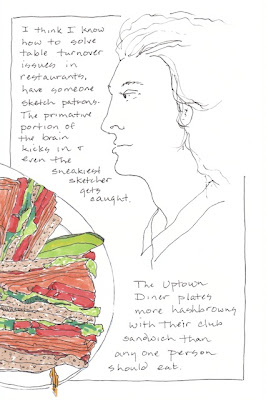 I think I know
how to solve
table turnover
issues in
restaurants,
have someone
sketch patrons.
The primative
portion of
the brain
kicks in &
even the
sneakiest
sketcher
gets
caught.
The Uptown
Diner plates
more hashbrowns
with their club
sandwich than
any one person
should eat.